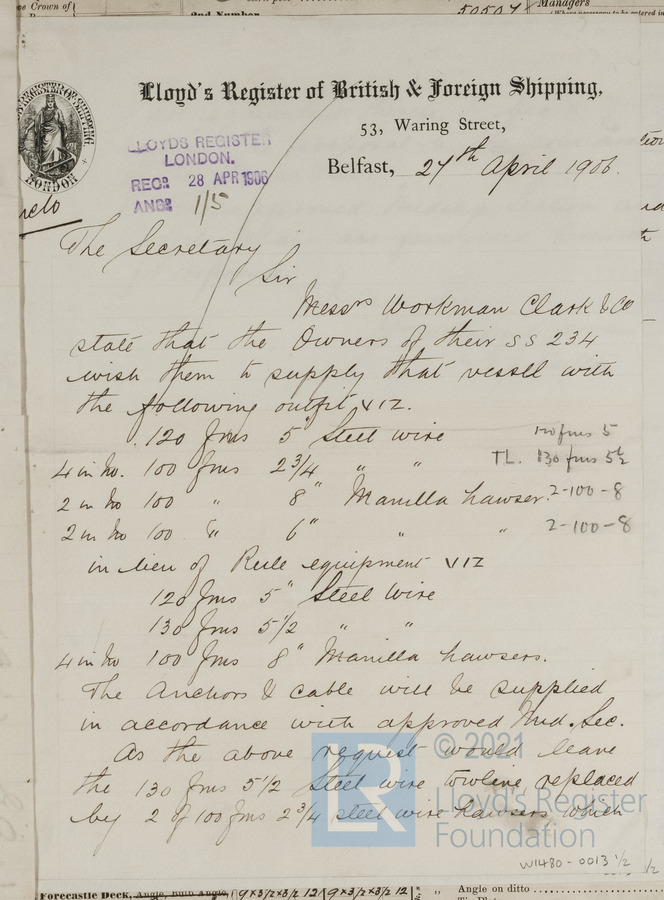 50507
Managers
2nd Number
Lloyd's Register of British & Foreign Shipping,
53, Waring Street,
Belfast, 27th April 1906.
LLOYDS REGISTER
LONDON.
RECD. 28 APR 1906
ANSD. 1/5
The Secretary
Sir
Messrs Workman Clark & Co
state that the Owners of their SS 234
wish them to supply that vessel with
the following outfit, VIZ.
120 fms 5" Steel wire
120 fms 5
4 in No. 100 fms 2 3/4 " "
TL. 130 fms 5 1/2
2 in No 100 " 8" Manilla hawser.
2-100-8
2 in No 100 " 6" " "
2-100-8
in lieu of Rule equipment VIZ
120 fms 5" Steel Wire
130 fms 5 1/2 " "
4 in No 100 fms 8" Manilla hawsers.
The Anchors & cable will be supplied
in accordance with approved Mid. Sec.
As the above request would leave
the 130 fms 5 1/2 Steel wire towline replaced
by 2 of 100 fms 2 3/4 steel wire hawsers which
LR
© 2021
Lloyd's Register
Foundation
W1480-0013 1/2
Forecastle Deck, Angle, Bulb Angle, 9x3 1/2x3 1/2 12 9x3 1/2x3 1/2 12
Angle on ditto